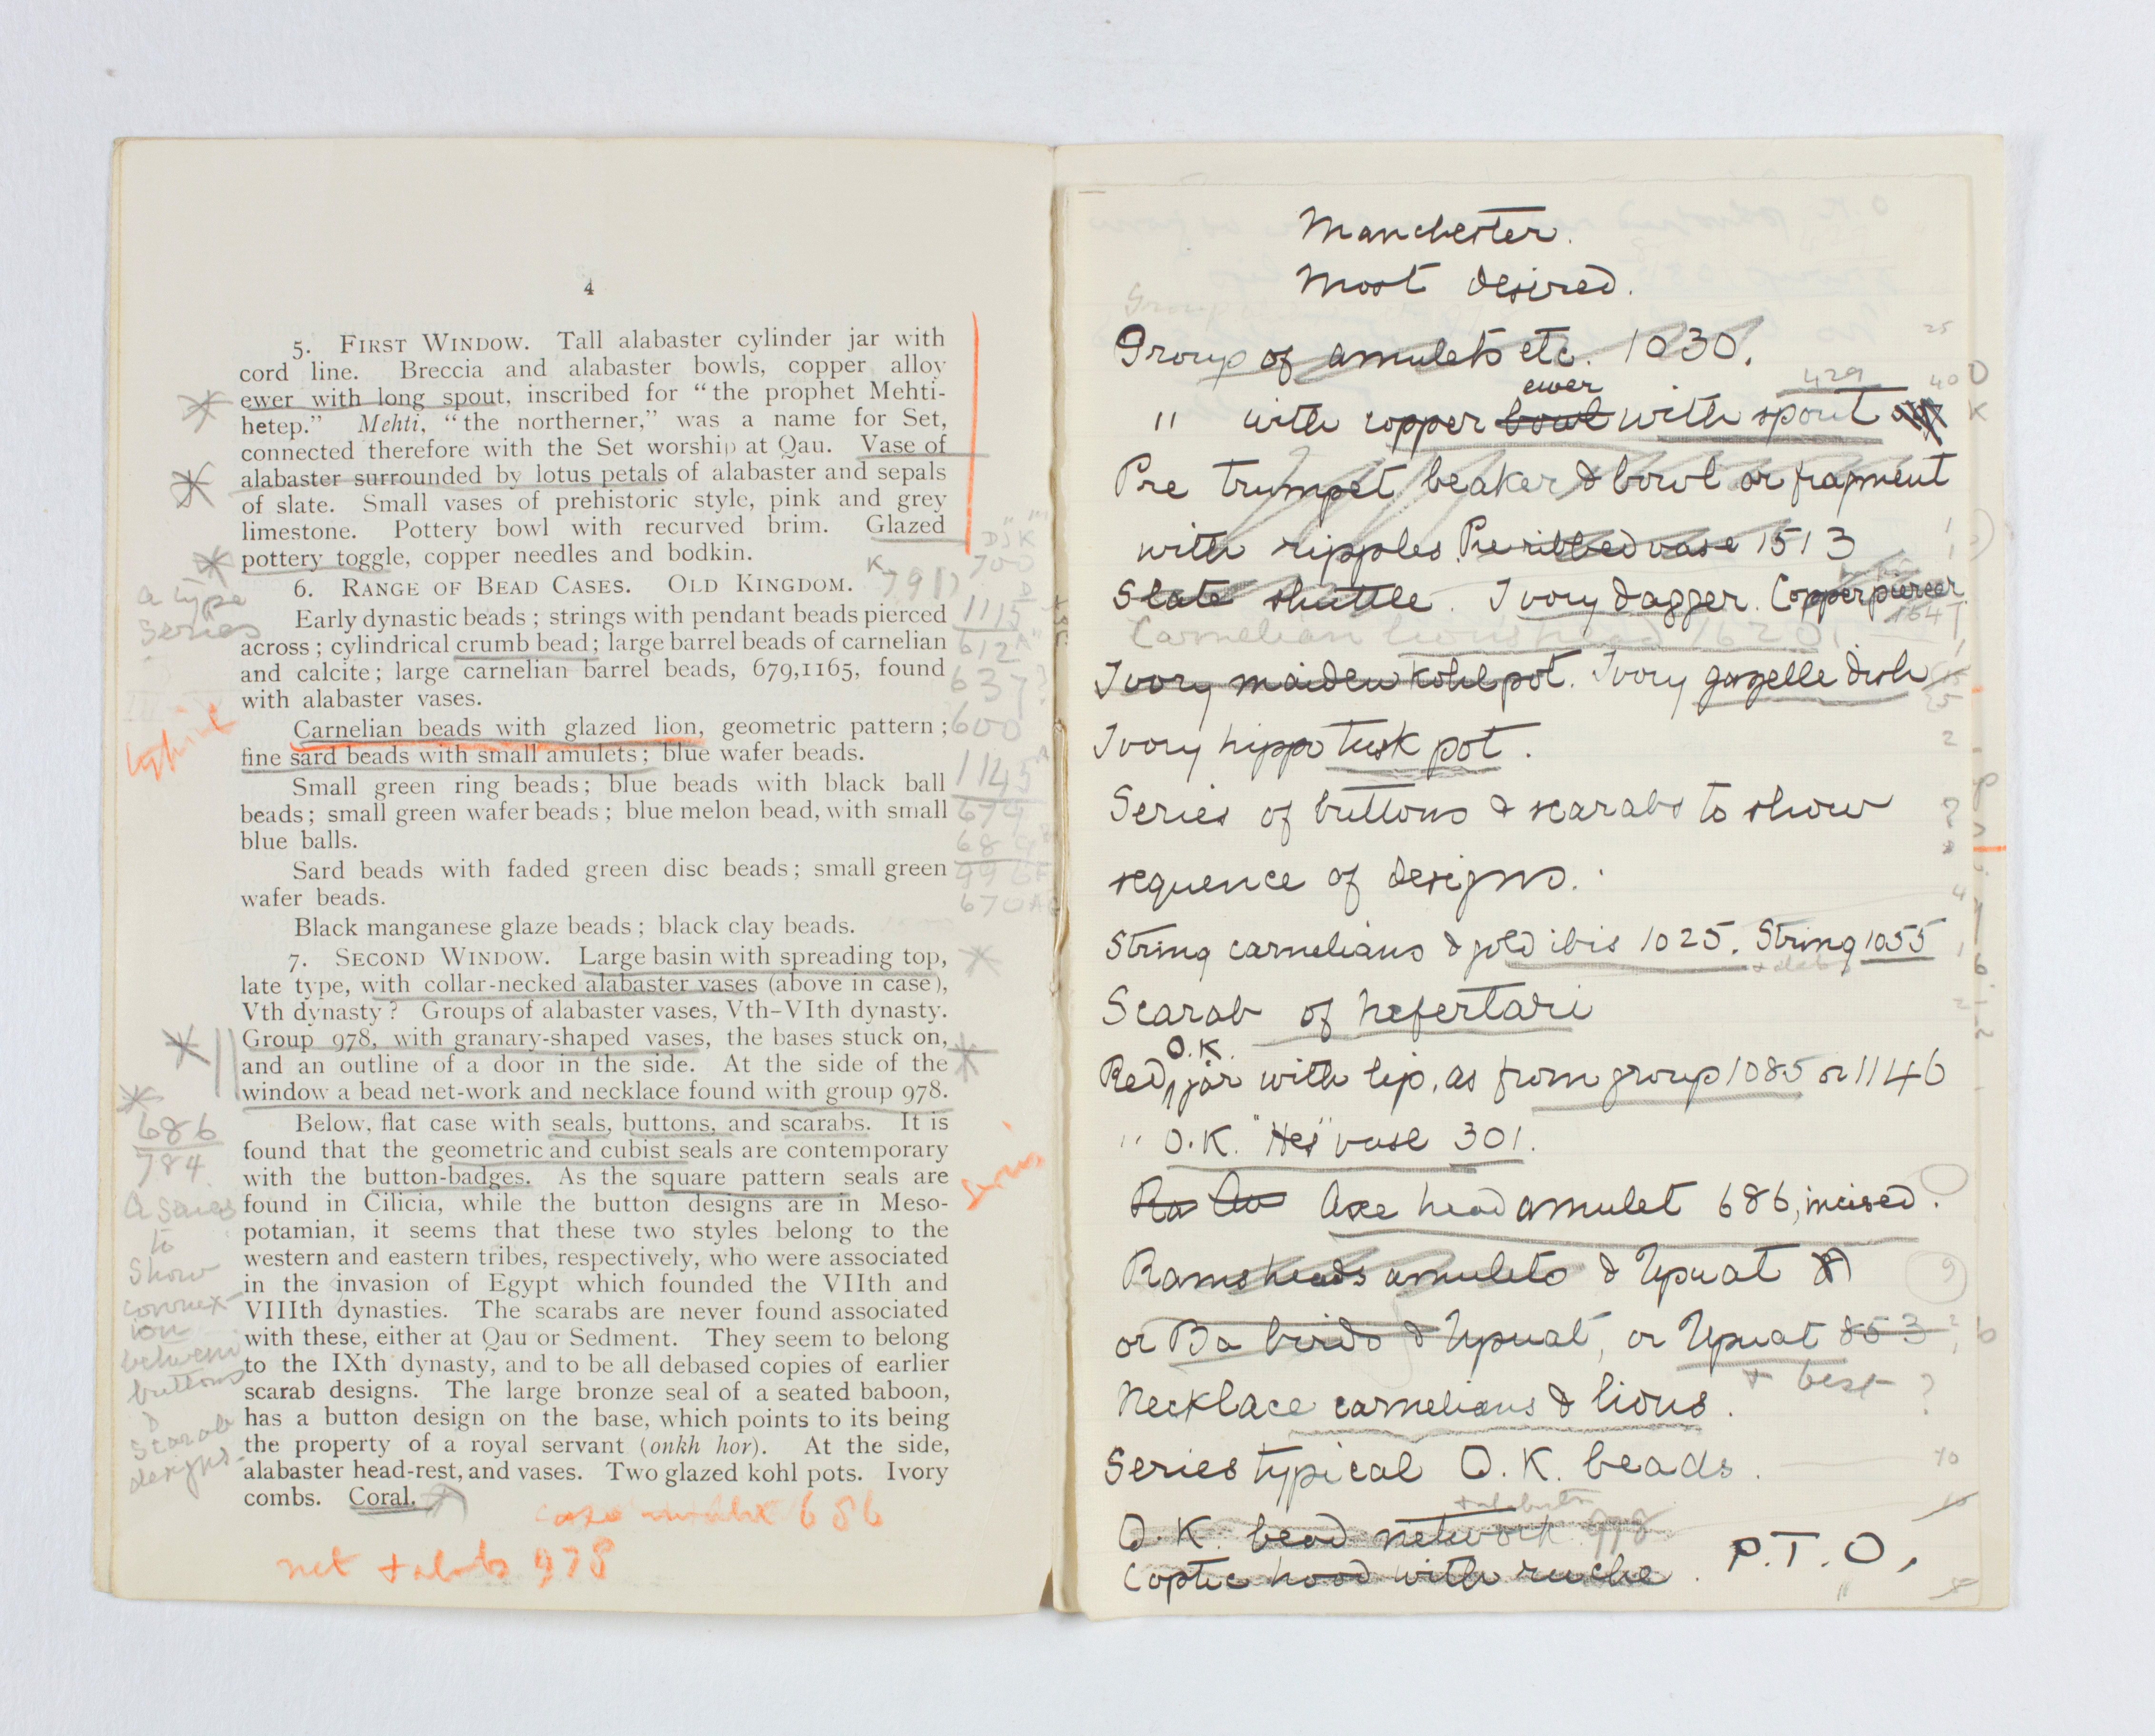 4
5. FIRST WINDOW. Tall alabaster cylinder jar with
cord line. Breccia and alabaster bowls, copper alloy
ewer with long spout, inscribed for “the prophet Mehti-
hetep.” Mehti, “the northerner,” was a name for Set,
connected therefore with the Set worship at Qau. Vase of
alabaster surrounded by lotus petals of alabaster and sepals
of slate. Small vases of prehistoric style, pink and grey
limestone. Pottery bowl with recurved brim. Glazed
pottery toggle, copper needles and bodkin.
6. RANGE OF BEAD CASES. OLD KINGDOM.
Early dynastic beads ; strings with pendant beads pierced
across ; cylindrical crumb bead ; large barrel beads of carnelian
and calcite ; large carnelian barrel beads, 679,1165, found
with alabaster vases.
Carnelian beads with glazed lion, geometric pattern ;
fine sard beads with small amulets ; blue wafer beads.
Small green ring beads ; blue beads with black ball
beads ; small green wafer beads ; blue melon bead, with small
blue balls.
Sard beads with faded green disc beads ; small green
wafer beads.
Black manganese glaze beads ; black clay beads.
7. SECOND WINDOW. Large basin with spreading top,
late type, with collar-necked alabaster vases (above in case),
Vth dynasty ? Groups of alabaster vases, Vth–VIth dynasty.
Group 978, with granary-shaped vases, the bases stuck on,
and an outline of a door in the side. At the side of the
window a bead net-work and necklace found with group 978.
Below, flat case with seals, buttons, and scarabs. It is
found that the geometric and cubist seals are contemporary
with the button-badges. As the square pattern seals are
found in Cilicia, while the button designs are in Meso-
potamian, it seems that these two styles belong to the
western and eastern tribes, respectively, who were associated
in the invasion of Egypt which founded the VIIth and
VIIIth dynasties. The scarabs are never found associated
with these, either at Qau or Sedment. They seem to belong
to the IXth dynasty, and to be all debased copies of earlier
scarab designs. The large bronze seal of a seated baboon,
has a button design on the base, which points to its being
the property of a royal servant (onkh hor). At the side,
alabaster head-rest, and vases. Two glazed kohl pots. Ivory
combs. Coral.
a type
series
686
784
A series
to
Show
connex-
ion
between
buttons
&
Scarab
designs
700
1115
612
637?
600
1145
679
689
996
670
series
686
net + alab 978
Manchester.
Most desired.
Group of amulets etc. 1030.
429
ewer
" with copper bowl with spout
Pre trumpet beaker & bowl or fragment
with ripples. Pre ribbed vase 1513
Slate shuttle. Ivory dagger. Copper piercer
1647
Carnelian lions head 1620
Ivory maiden kohl pot. Ivory gazelle dish
Ivory hippo tusk pot.
Series of buttons & scarabs to show
sequence of designs.
String carnelians & gold ibis 1025. String 1055
Scarab of Nefertari
O.K.
Red jar with lip, as from group 1085 or 1146
" O.K. "Hes" vase 301.
Axe head amulet 686, incised.
Rams heads amulets & Upuat
or Ba birds & Upuat, or Upuat 853
+ best ?
Necklace carnelians & lions.
Series typical O.K. beads.
O.K. bead network 978
Coptic hood with ruche. P.T.O.